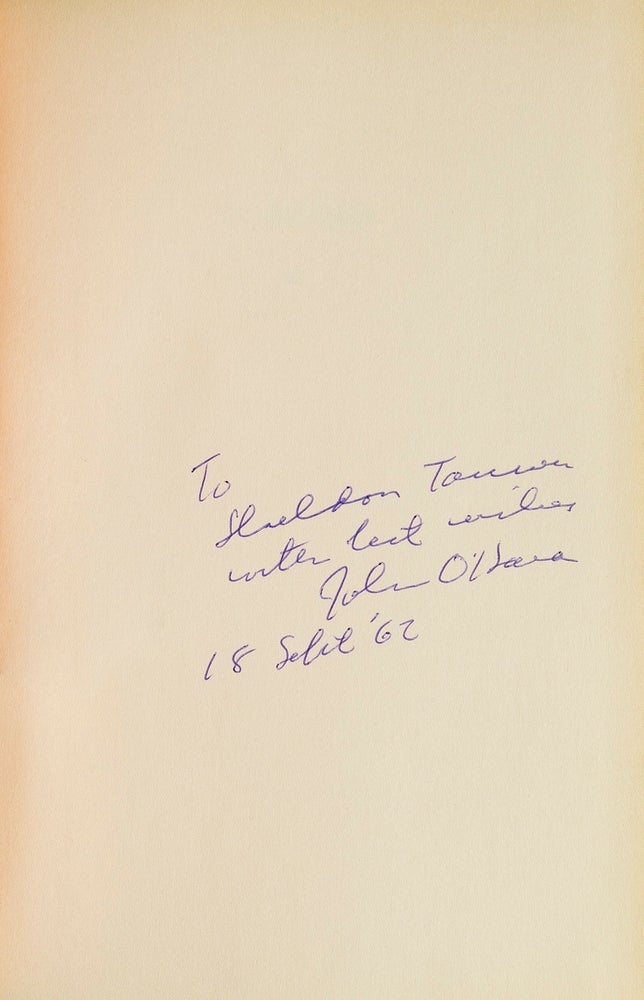 To
Sheldon Tannen
with best wishes
John O'Hara
18 Sept '62